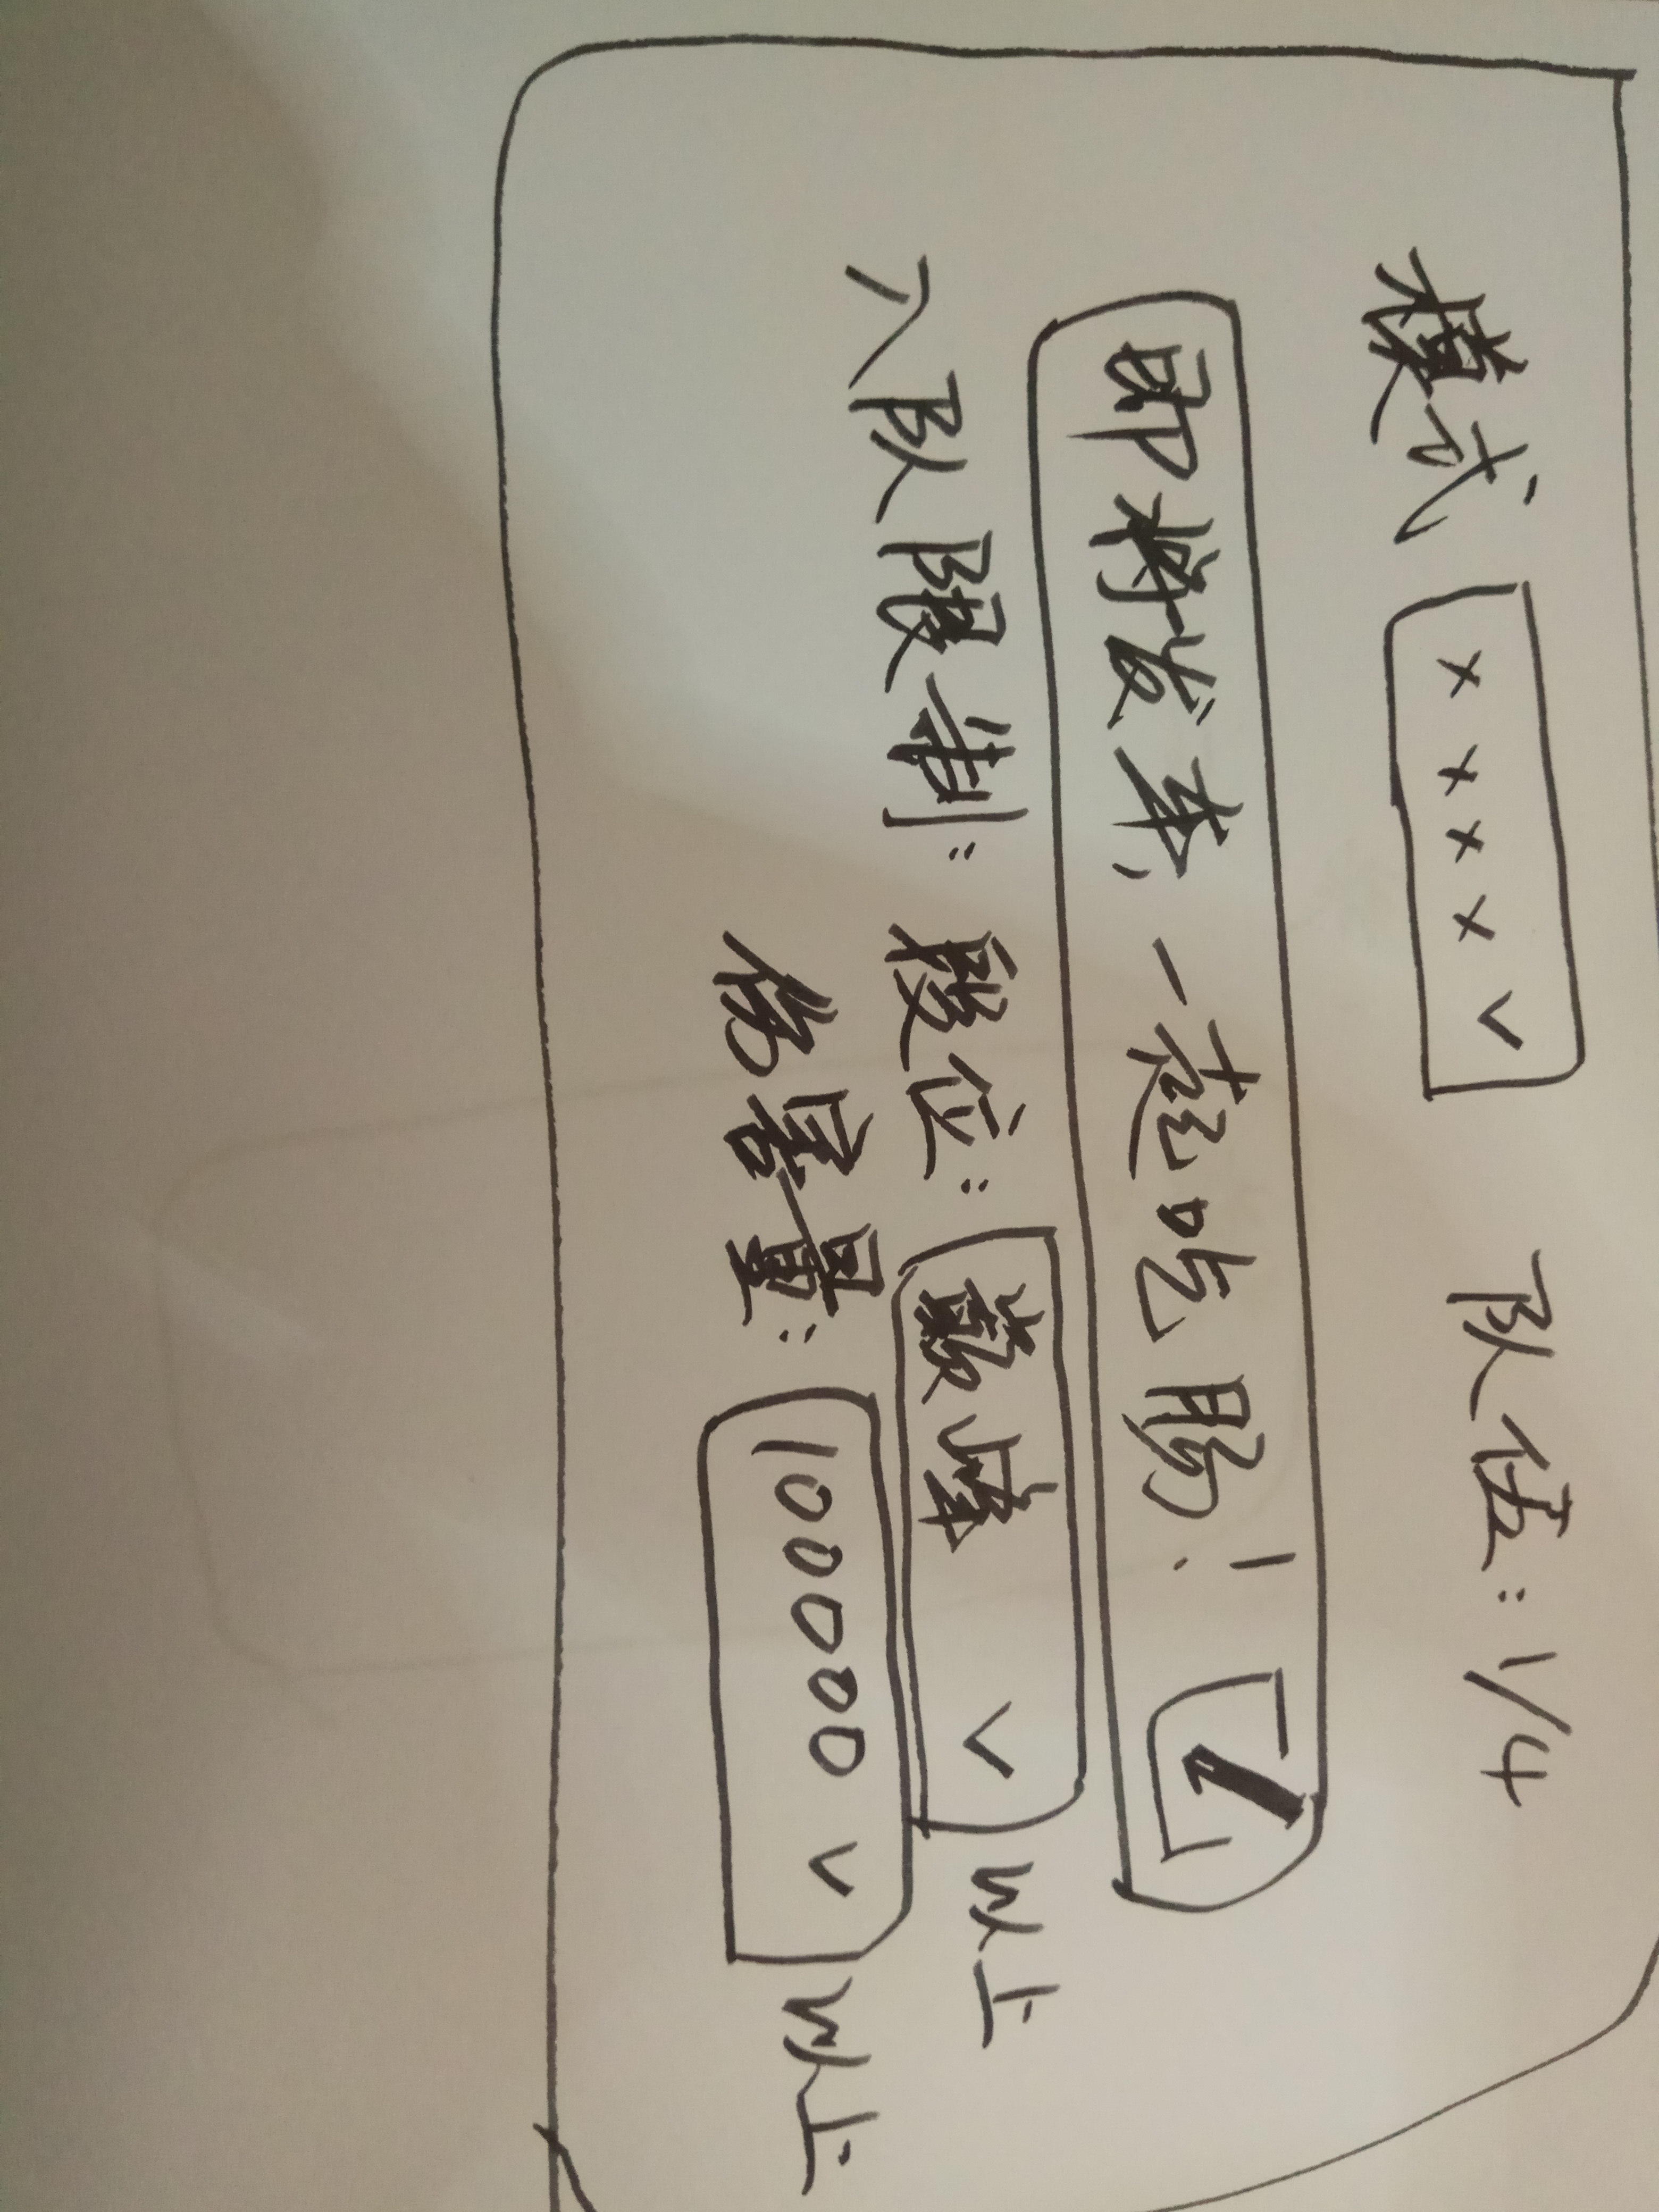 模式 ×××× ∨ 队伍：1/4
即将发车，一起吃肠！
入队限制：段位：巅峰 ∨ 以上
伤害量：100000 ∨ 以上